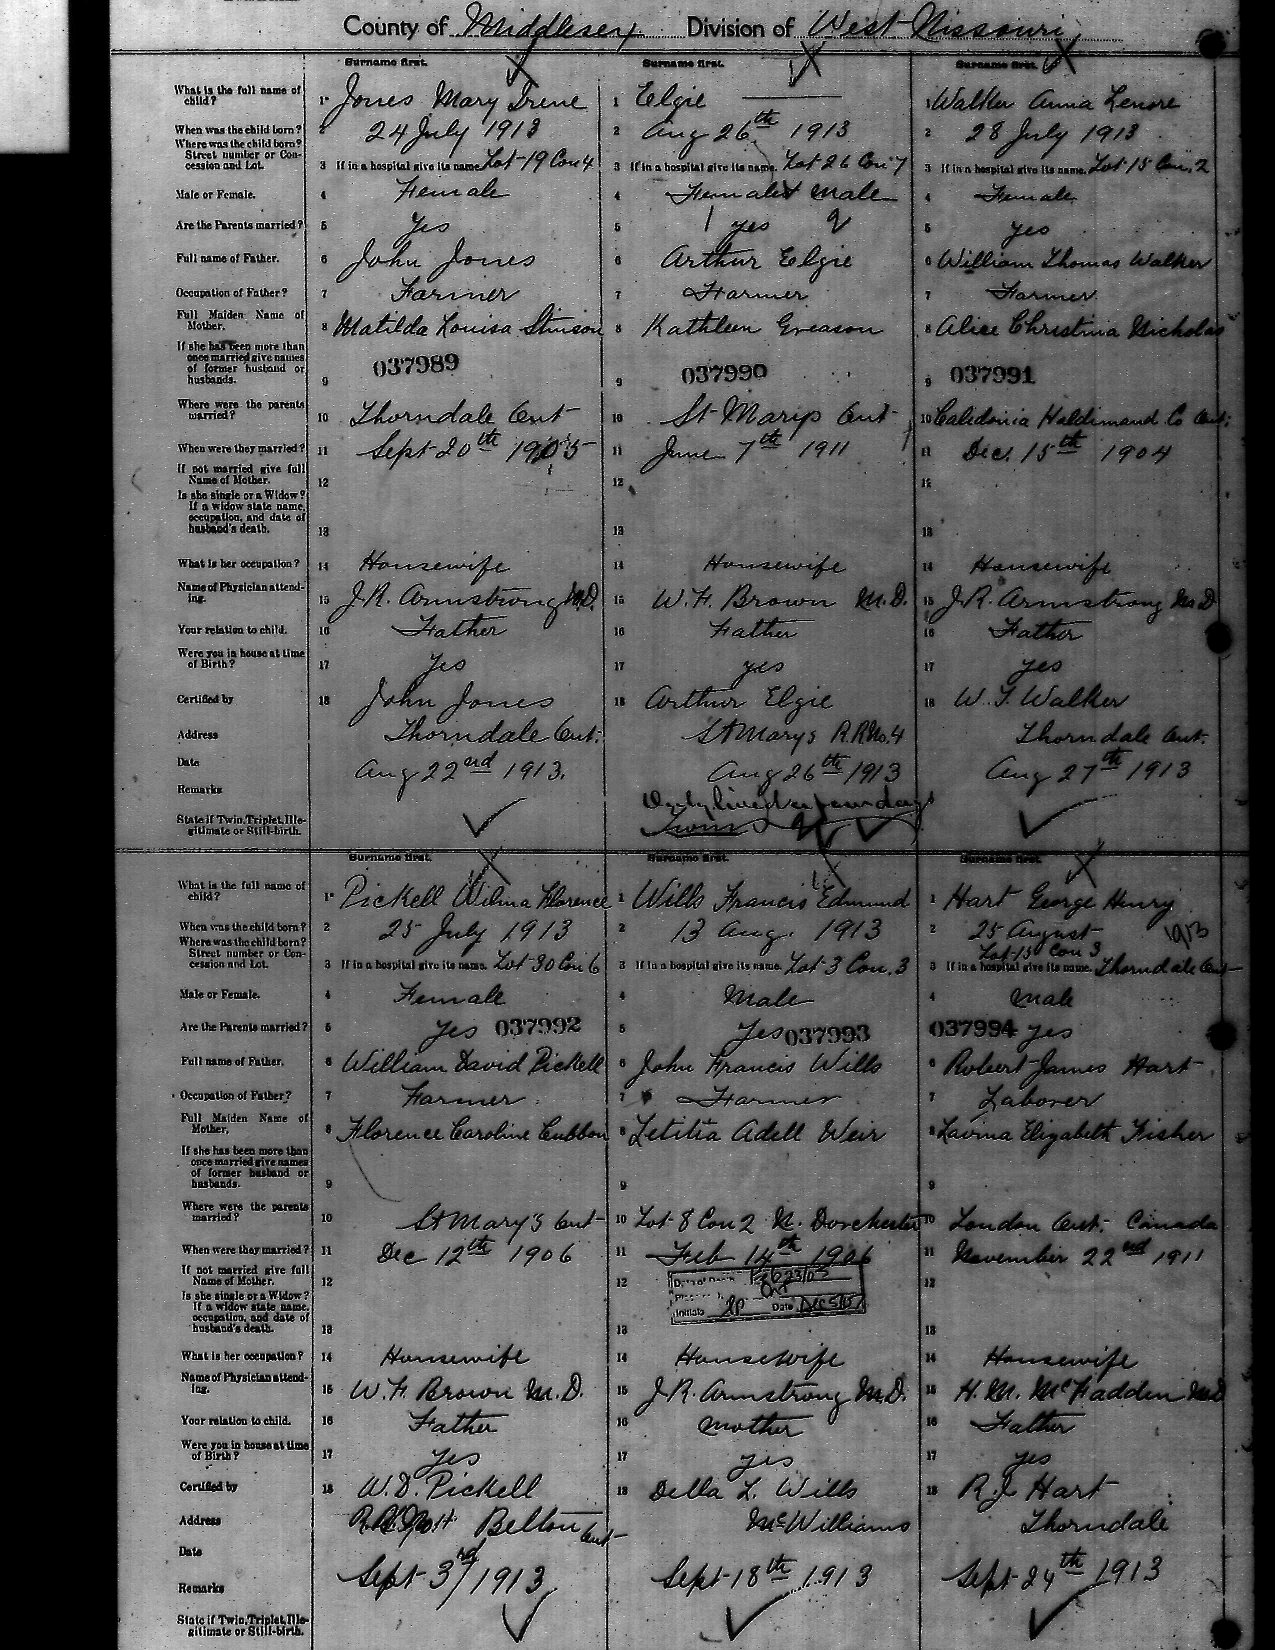 County of Middlesex Division of West Nissouri
Surname first. Surname first. Surname first.
What is the full name of child? 1 Jones Mary Irene 1 Elgie 1 Walker Anna Lenore
When was the child born? 2 24 July 1913 2 Aug 26th 1913 2 28 July 1913
Where was the child born? Street number or Concession and Lot. 3 If in a hospital give its name. Lot 19 Con 4 3 If in a hospital give its name. Lot 26 Con 7 3 If in a hospital give its name. Lot 15 Con. 2
Male or Female. 4 Female 4 Female & male 4 Female
Are the Parents married? 5 Yes 5 1 yes 2 5 yes
Full name of Father. 6 John Jones 6 Arthur Elgie 6 William Thomas Walker
Occupation of Father? 7 Farmer 7 Farmer 7 Farmer
Full Maiden Name of Mother. 8 Matilda Louisa Stinson 8 Kathleen Greason 8 Alice Christina Nicholas
If she has been more than once married give names of former husband or husbands. 9 037989 9 037990 9 037991
Where were the parents married? 10 Thorndale Ont 10 St Marys Ont 10 Caledonia Haldimand Co Ont.
When were they married? 11 Sept 20th 1905 11 June 7th 1911 11 Dec. 15th 1904
If not married give full Name of Mother. 12 12 12
Is she single or a Widow? If a widow state name, occupation, and date of husband's death. 13 13 13
What is her occupation? 14 Housewife 14 Housewife 14 Housewife
Name of Physician attending. 15 J.R. Armstrong M.D. 15 W.F. Brown M.D. 15 J.R. Armstrong M.D
Your relation to child. 16 Father 16 Father 16 Father
Were you in house at time of Birth? 17 Yes 17 yes 17 yes
Certified by 18 John Jones 18 Arthur Elgie 18 W.T. Walker
Address Thorndale Ont. St Marys R.R No. 4 Thorndale Ont.
Date Aug 22nd 1913. Aug 26th 1913 Aug 27th 1913
Remarks Only lived a few days
State if Twin, Triplet, Illegitimate or Still-birth. Twins
Surname first. Surname first. Surname first.
What is the full name of child? 1 Pickell Wilma Florence 1 Wills Francis Edmund 1 Hart George Henry
When was the child born? 2 25 July 1913 2 13 Aug. 1913 2 25 August 1913
Where was the child born? Street number or Concession and Lot. 3 If in a hospital give its name. Lot 30 Con 6 3 If in a hospital give its name. Lot 3 Con. 3 3 If in a hospital give its name. Lot 15 Con 3 Thorndale Ont
Male or Female. 4 Female 4 Male 4 Male
Are the Parents married? 5 Yes 037992 5 Yes 037993 037994 yes
Full name of Father. 6 William David Pickell 6 John Francis Wills 6 Robert James Hart
Occupation of Father? 7 Farmer 7 Farmer 7 Laborer
Full Maiden Name of Mother, 8 Florence Caroline Cubbon 8 Letitia Adell Weir 8 Lavina Elizabeth Fisher
If she has been more than once married give names of former husband or husbands. 9 9 9
Where were the parents married? 10 St Mary's Ont 10 Lot 8 Con 2 N. Dorchester 10 London Ont. Canada
When were they married? 11 Dec 12th 1906 11 Feb 14th 1906 11 November 22nd 1911
If not married give full Name of Mother. 12 12 12
Initials Date
Is she single or a Widow? If a widow state name, occupation, and date of husband's death. 13 13 13
What is her occupation? 14 Housewife 14 Housewife 14 Housewife
Name of Physician attending. 15 W.F. Brown M.D. 15 J.R. Armstrong M.D. 15 H.M. McFadden M.D
Your relation to child. 16 Father 16 mother 16 Father
Were you in house at time of Birth? 17 Yes 17 yes 17 yes
Certified by 18 W.D. Pickell 18 Della L. Wills 18 R.J. Hart
Address Belton Ont McWilliams Thorndale
Date Sept 3rd/1913 Sept 18th 1913 Sept 24th 1913
Remarks
State if Twin, Triplet, Illegitimate or Still-birth.